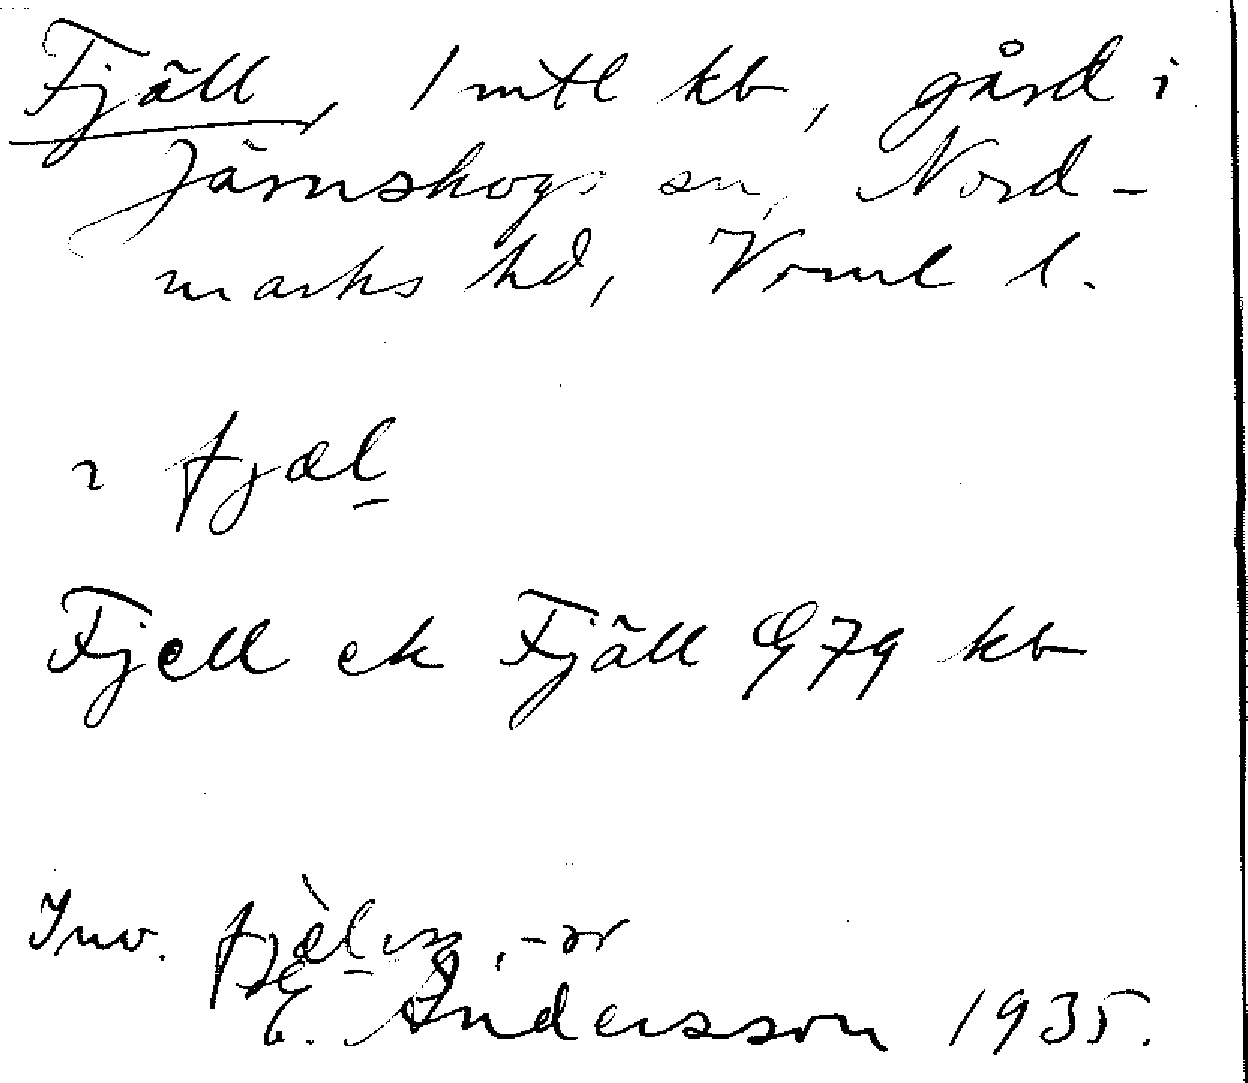 Fjäll, 1 mtl kb, gård i
Järnskogs sn, Nord-
marks hd, Vrml l.
fjæl
Fjell ek Fjäll G 79 kb
Inv. , -ar
E. Andersson 1935.